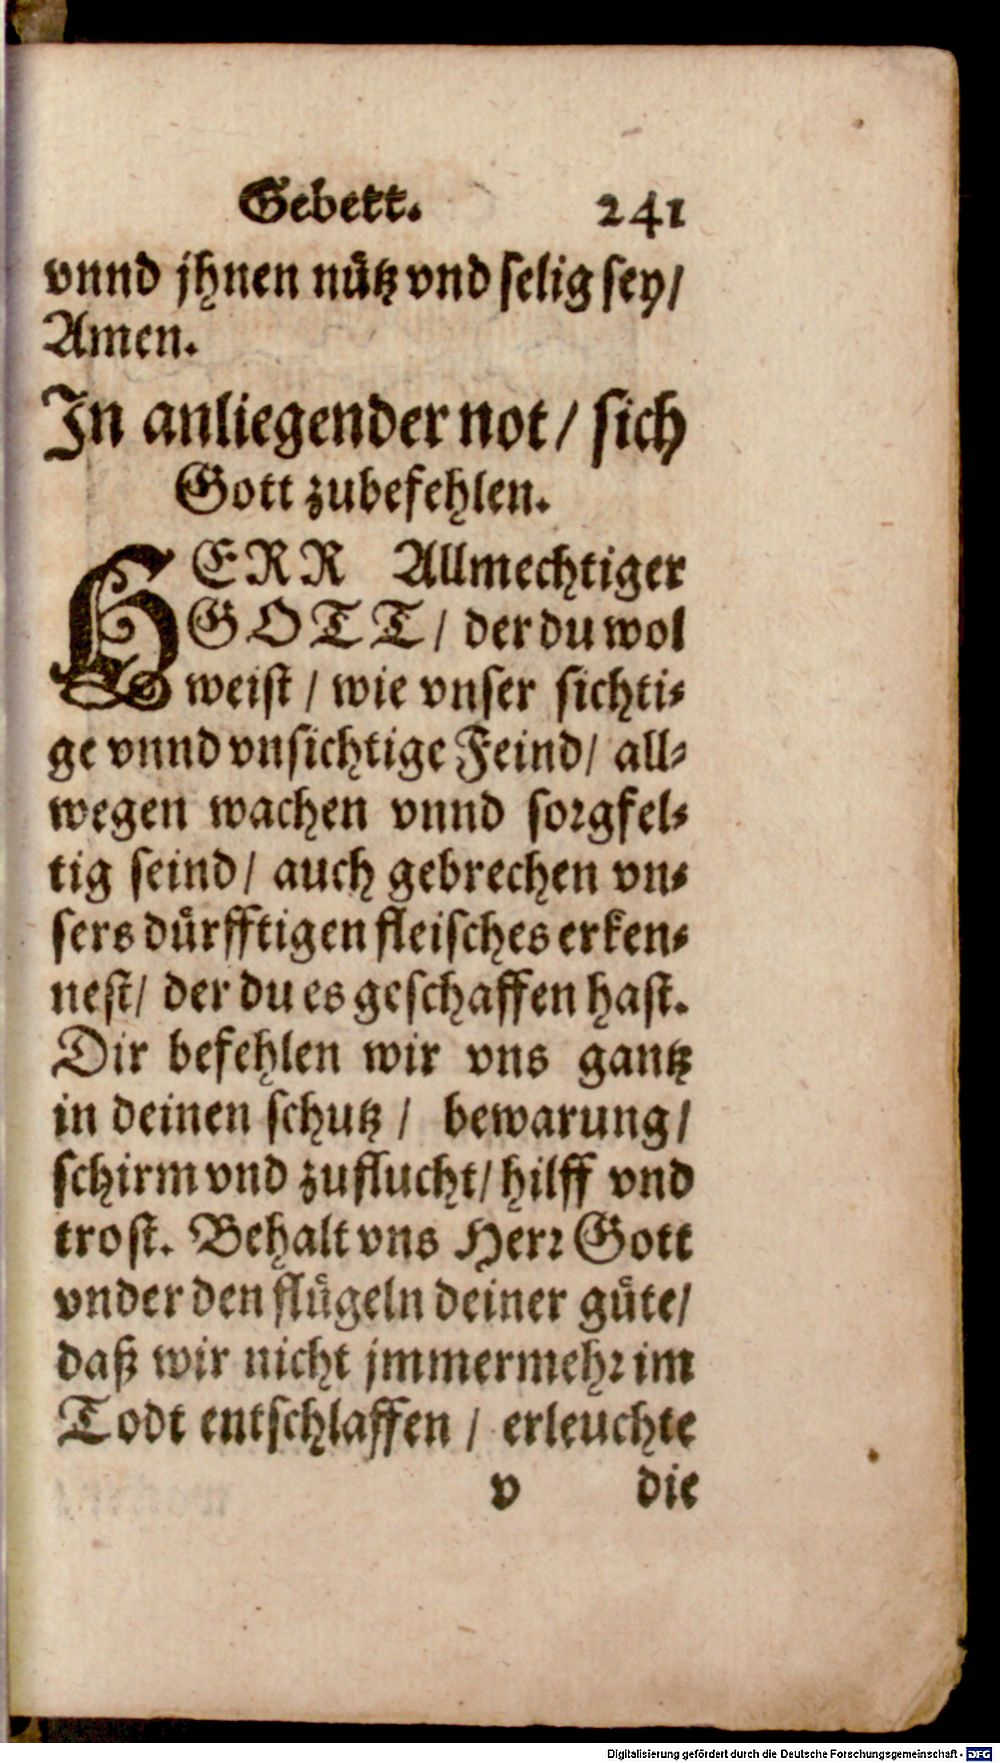 Gebett. 241
vnnd jhnen nütz vnd selig sey/
Amen.
In anliegender not/ sich
Gott zubefehlen.
HERR Allmechtiger
GOTT/ der du wol
weist/ wie vnser sichti⸗
ge vnnd vnsichtige Feind/ all⸗
wegen wachen vnnd sorgfel⸗
tig seind/ auch gebrechen vn⸗
sers dürfftigen fleisches erken⸗
nest/ der du es geschaffen hast.
Dir befehlen wir vns gantz
in deinen schutz/ bewarung/
schirm vnd zuflucht/ hilff vnd
trost. Behalt vns Herr Gott
vnder den flügeln deiner güte/
daß wir nicht jmmermehr im
Todt entschlaffen/ erleuchte
v die
Digitalisierung gefördert durch die Deutsche Forschungsgemeinschaft - DFG